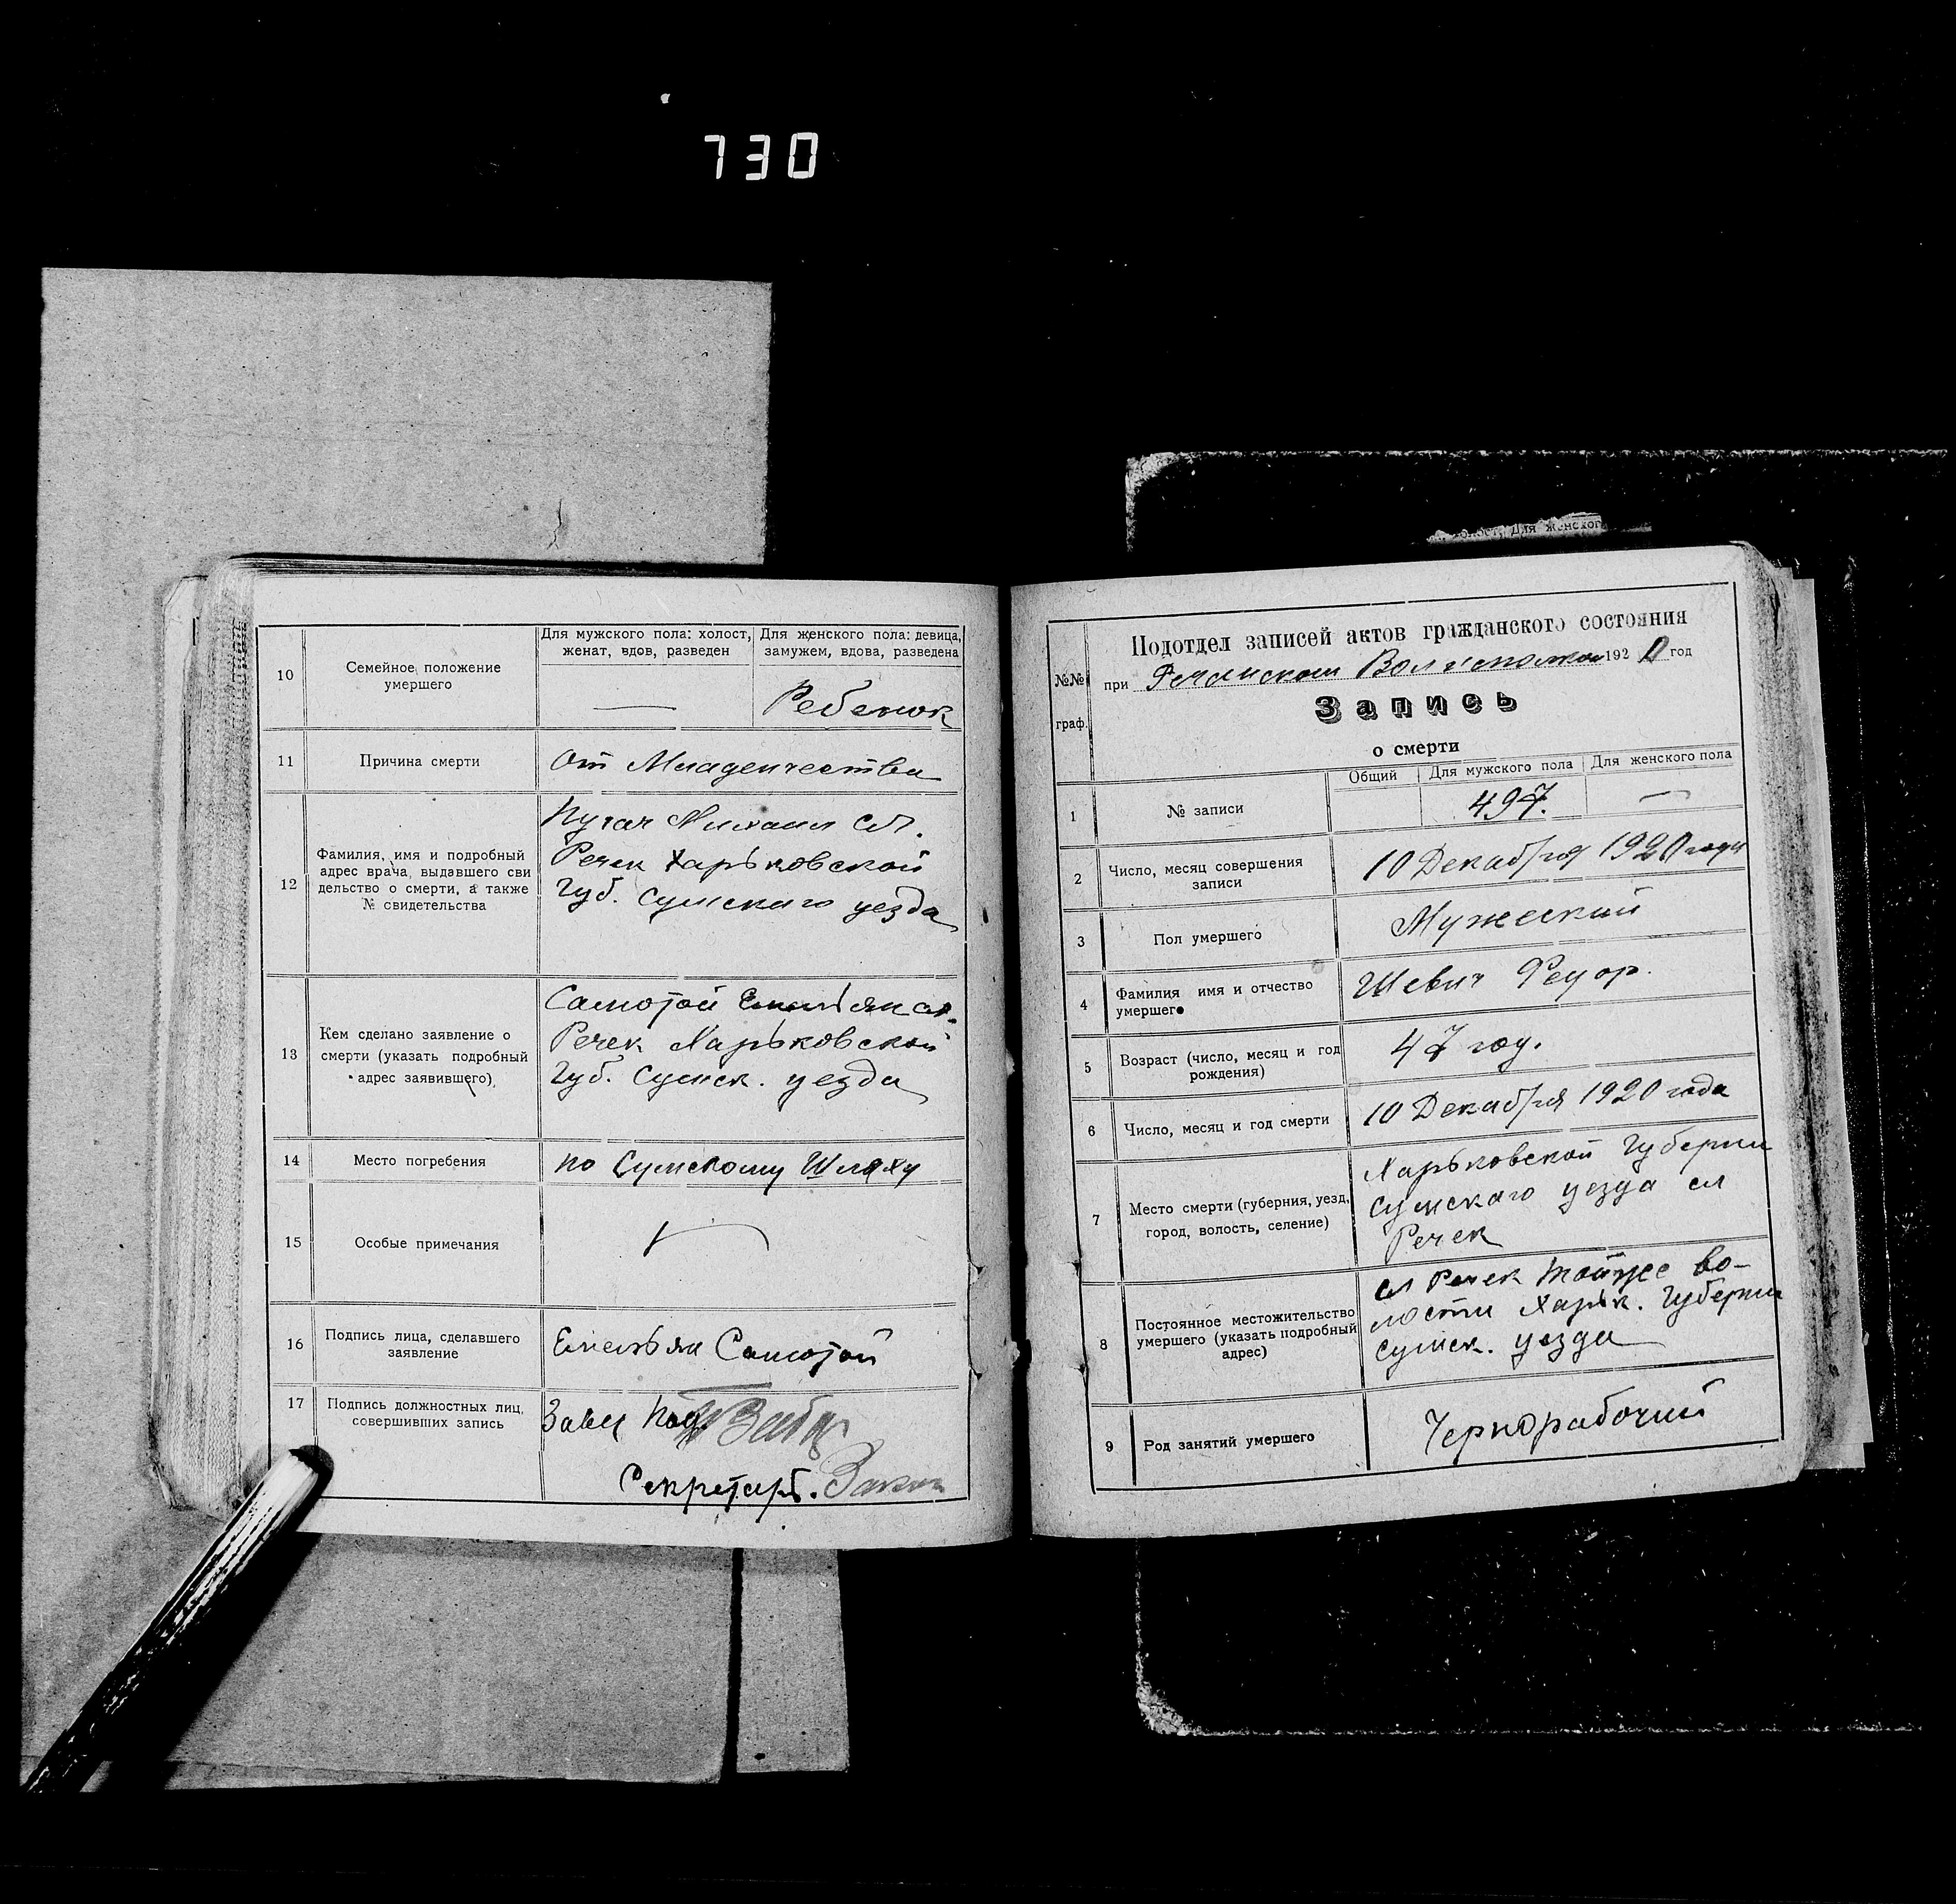 730
10
Семейное положение
умершего
Для мужского пола: холост,
женат, вдов, разведен
Для женского пола: девица,
замужем, вдова, разведена
—
Ребенок
11
Причина смерти
От Младенчества
12
Фамилия, имя и подробный
адрес врача, выдавшего сви
дельство о смерти, а также
№ свидетельства
Пугач Михаил сл.
Речек Харьковской
Губ. Сумскаго уезда
13
Кем сделано заявление о
смерти (указать подробный
адрес заявившего)
Самотой Емельян сл.
Речек Харьковской
Губ. Сумск. уезда
14
Место погребения
по Сумскому Шляху
15
Особые примечания
16
Подпись лица, сделавшего
заявление
Емельян Самотой
17
Подпись должностных лиц,
совершивших запись
Завед Под
Секретарь.
№№
граф.
Подотдел записей актов гражданского состояния
при Речанском Волисполкоме 1920 год
Запись
о смерти
Общий
Для мужского пола
Для женского пола
1
№ записи
497.
—
2
Число, месяц совершения
записи
10 Декабря 1920 года
3
Пол умершего
Мужеский
4
Фамилия имя и отчество
умершего
Шевич Федор.
5
Возраст (число, месяц и год
рождения)
47 год.
6
Число, месяц и год смерти
10 Декабря 1920 года
7
Место смерти (губерния, уезд,
город, волость, селение)
Харьковской Губернии
Сумскаго уезда сл
Речек
8
Постоянное местожительство
умершего (указать подробный
адрес)
сл Речек тойже во-
лости Харьк. Губернии
Сумск. уезда
9
Род занятий умершего
Чернорабочий